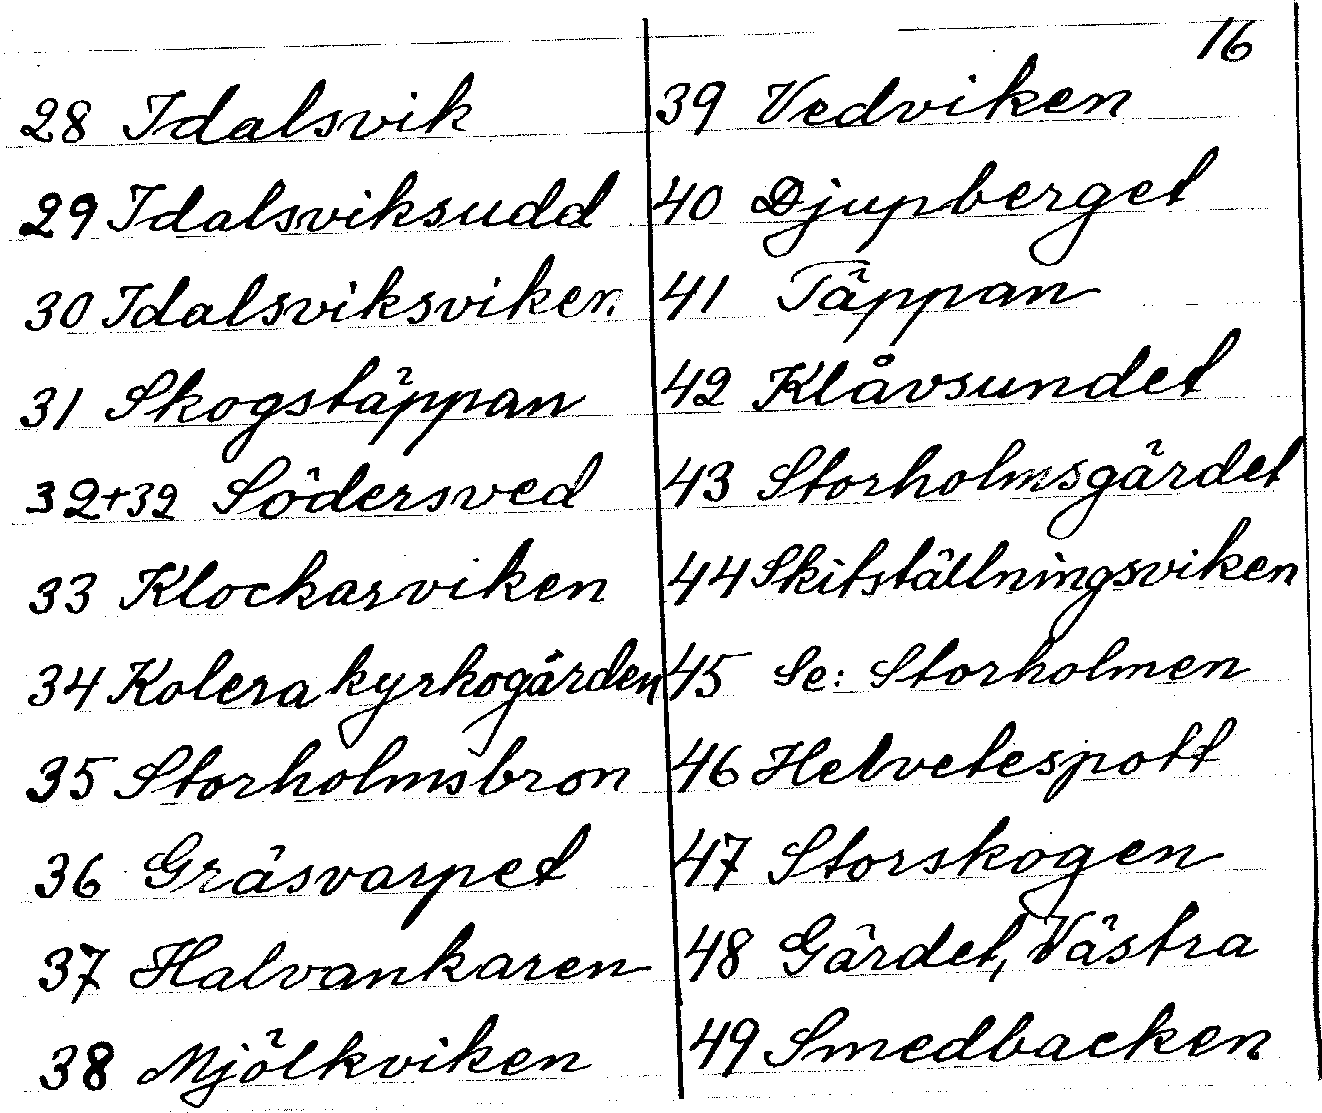 16
28 Idalsvik
29 Idalsviksudd
30 Idalsviksviken
31 Skogstäppan
32+32 Södersved
33 Klockarviken
34 Kolera kyrkogården
35 Storholmsbron
36 Gräsvarpet
37 Halvankaren
38 Mjölkviken
39 Vedviken
40 Djupberget
41 Täppan
42 Klåvsundet
43 Storholmsgärdet
44 Skitställningsviken
45 Se: Storholmen
46 Helvetespott
47 Storskogen
48 Gärdet, Västra
49 Smedbacken